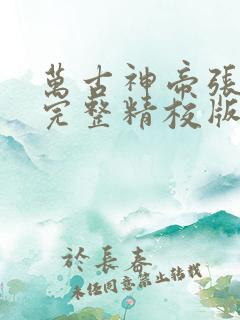 萬古神帝張
完整精校版
於長春
未經同意禁止轉載